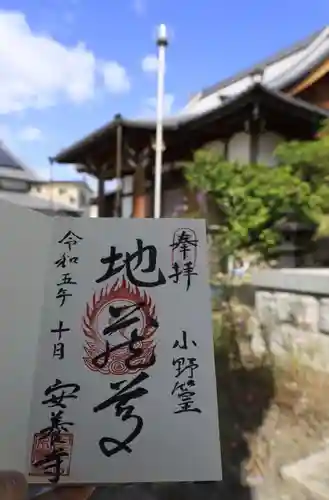 奉拝
小野篁
地蔵尊
令和五年十日
安養寺